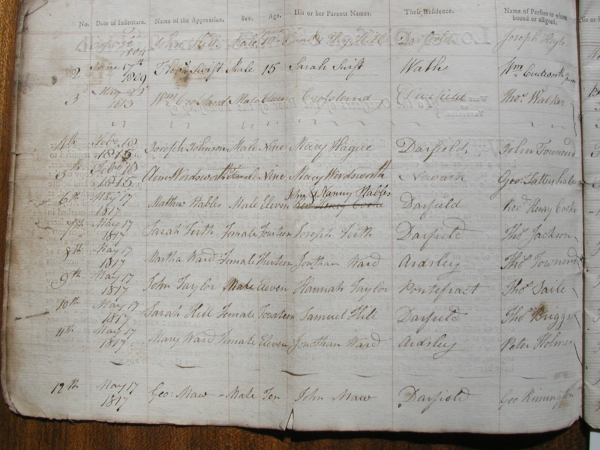 No. Date of Indenture. Name of the Apprentice. Sex. Age. His or her Parents Names. Their Residence. Name of Persons to whom bound or assigned.
1804 Hill Male Hill Darfield Joseph
2 17th 1809 Thos Swift Male 15 Sarah Swift Wath Wm
3 1813 Wm Crossland Male Eleven Crossland Darfield Thos Walker
4th Feby 18 1815 Joseph Johnson Male Nine Mary Darfield John Townend
5th Feby 18 1815 Ann Wordsworth Female Nine Mary Wordsworth Newark Geo
6th May 17 1817 Matthew Male Eleven John & Nanny Darfield Revd Henry Cooke
7th May 17 1817 Sarah Firth Female Fourteen Joseph Firth Darfield Thos Jackson
8th May 17 1817 Martha Ward Female Thirteen Jonathan Ward Ardsley Thos Townend
9th May 17 1817 John Taylor Male Eleven Hannah Taylor Pontefract Thos
10th May 17 1817 Sarah Hill Female Fourteen Samuel Hill Darfield Thos
11th May 17 1817 Mary Ward Female Eleven Jonathan Ward Ardsley Peter Holmes
12th May 17 1817 Geo Maw Male Ten John Maw Darfield Geo Rimington